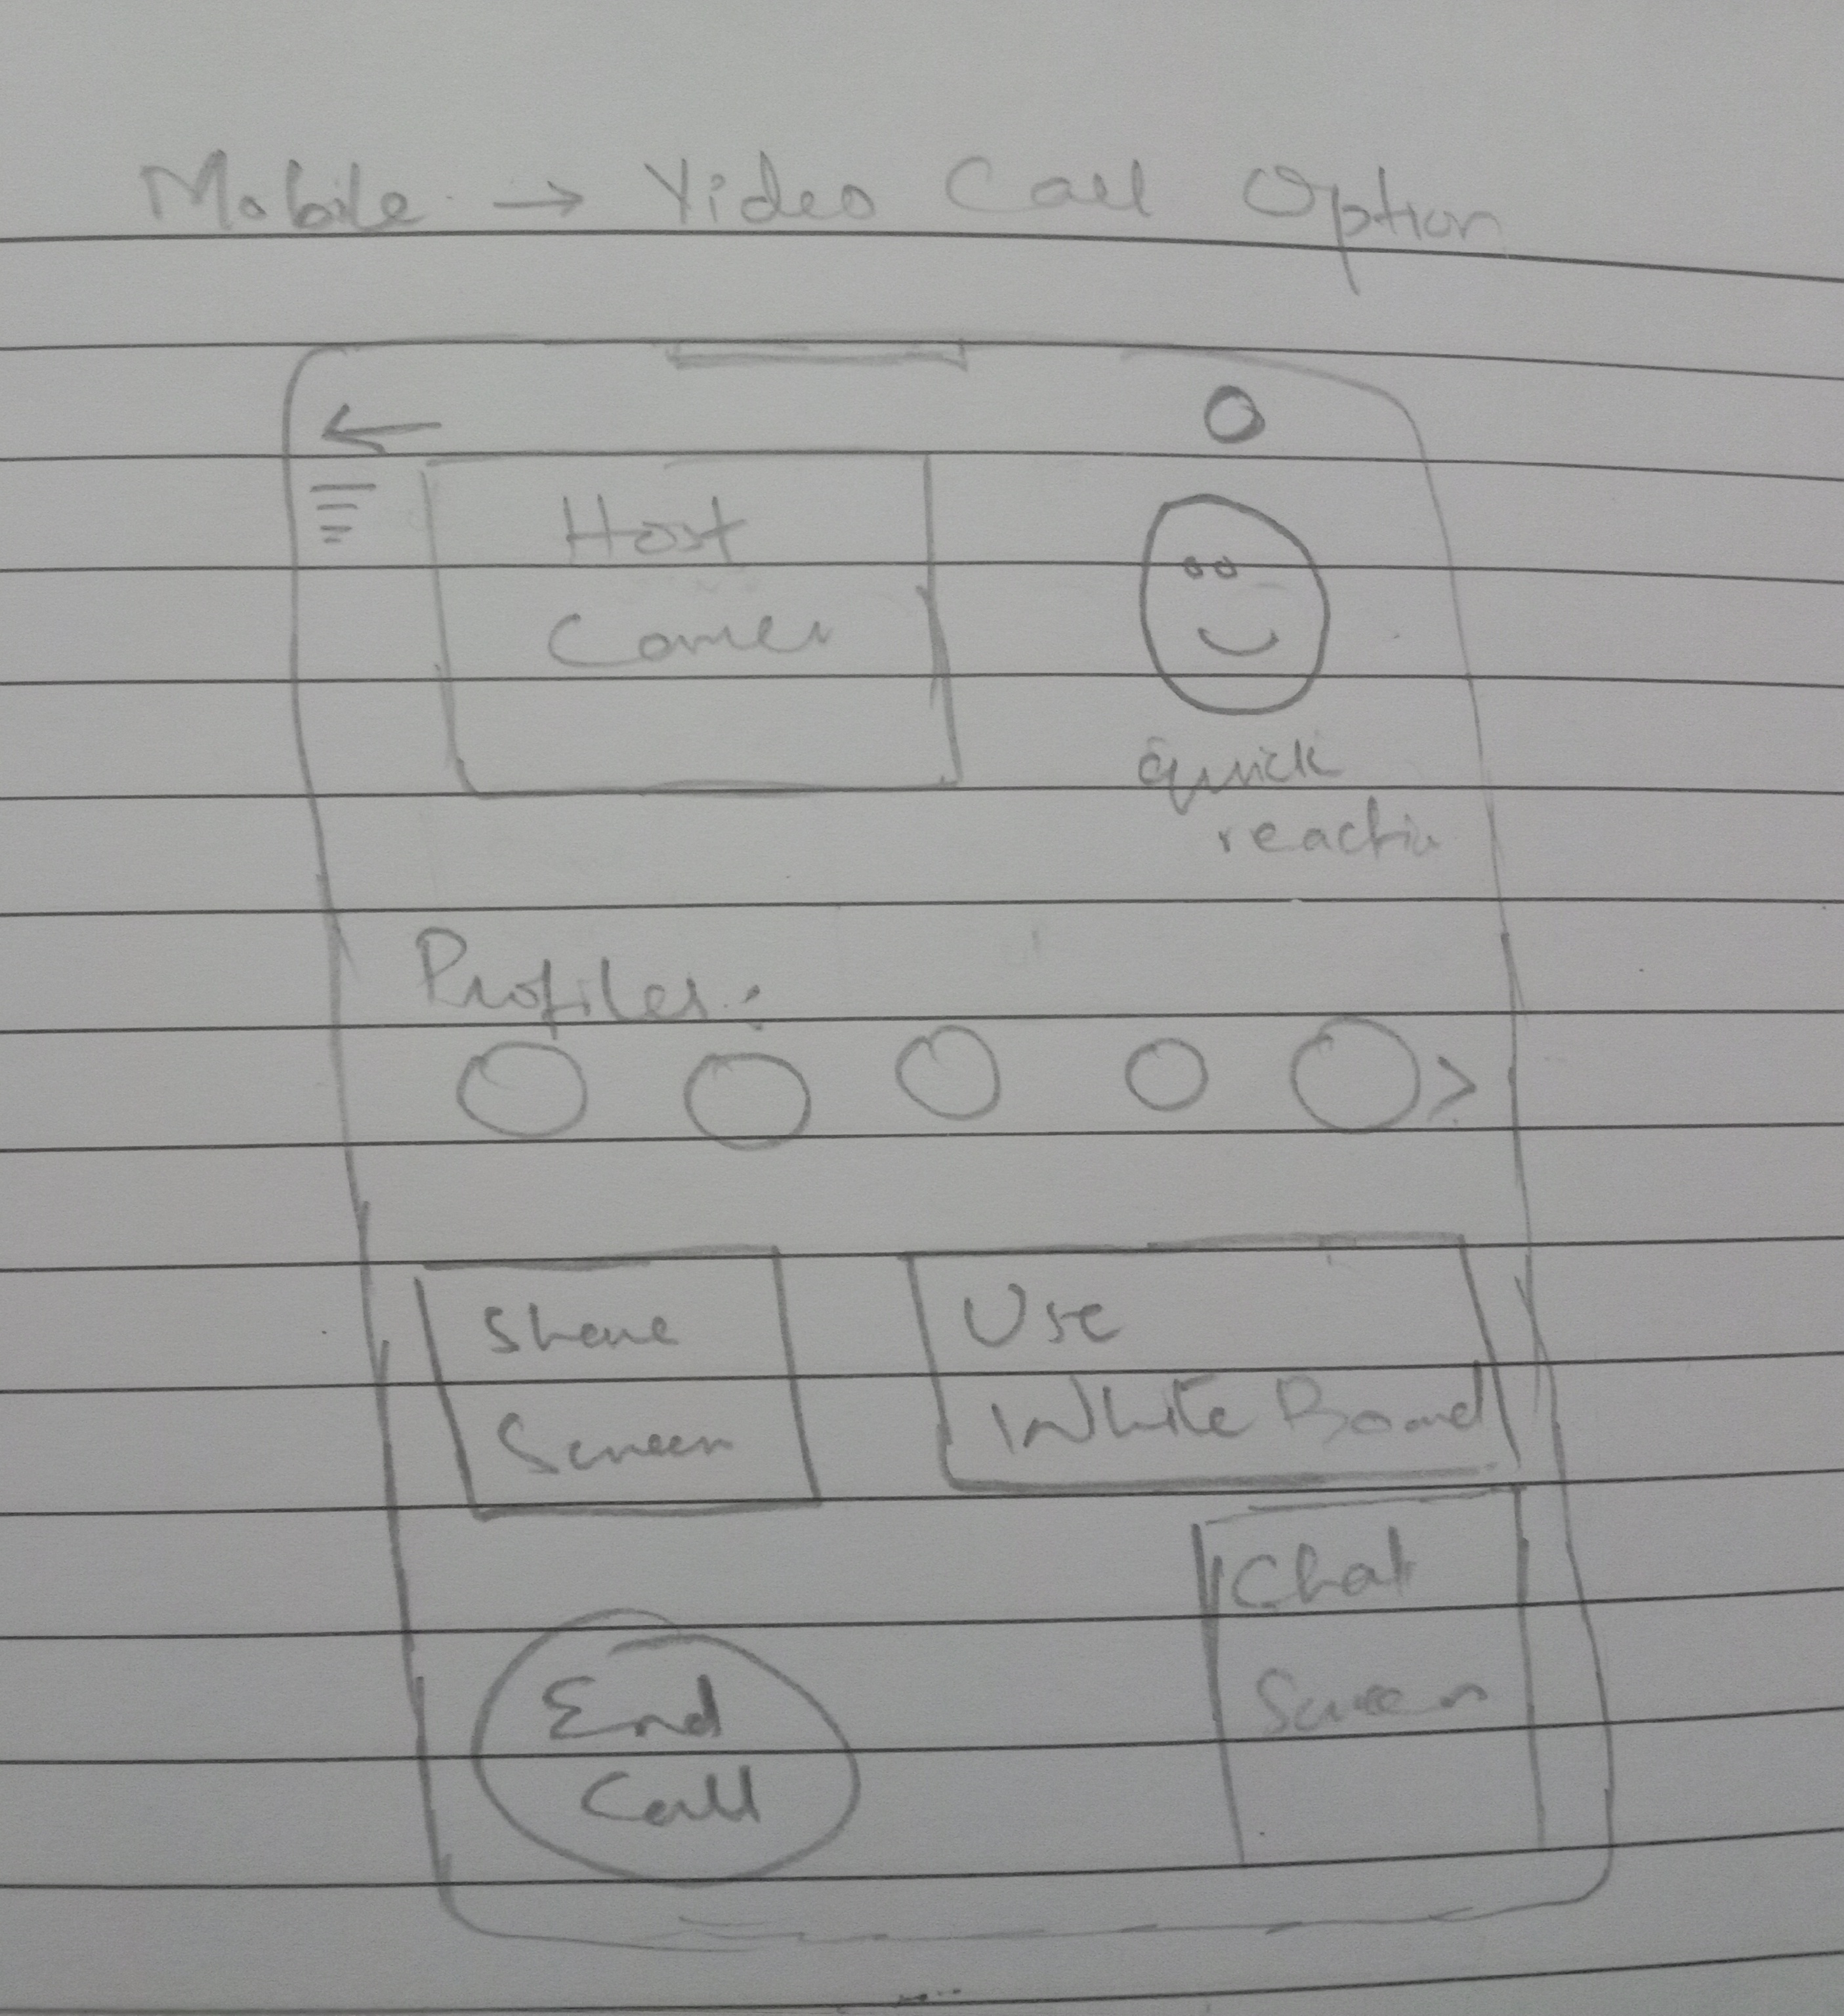 Mobile → Video Call Option
Host
quick
reactin
Profiles:
Share
Screen
Use
White Board
Chat
Screen
End
Call